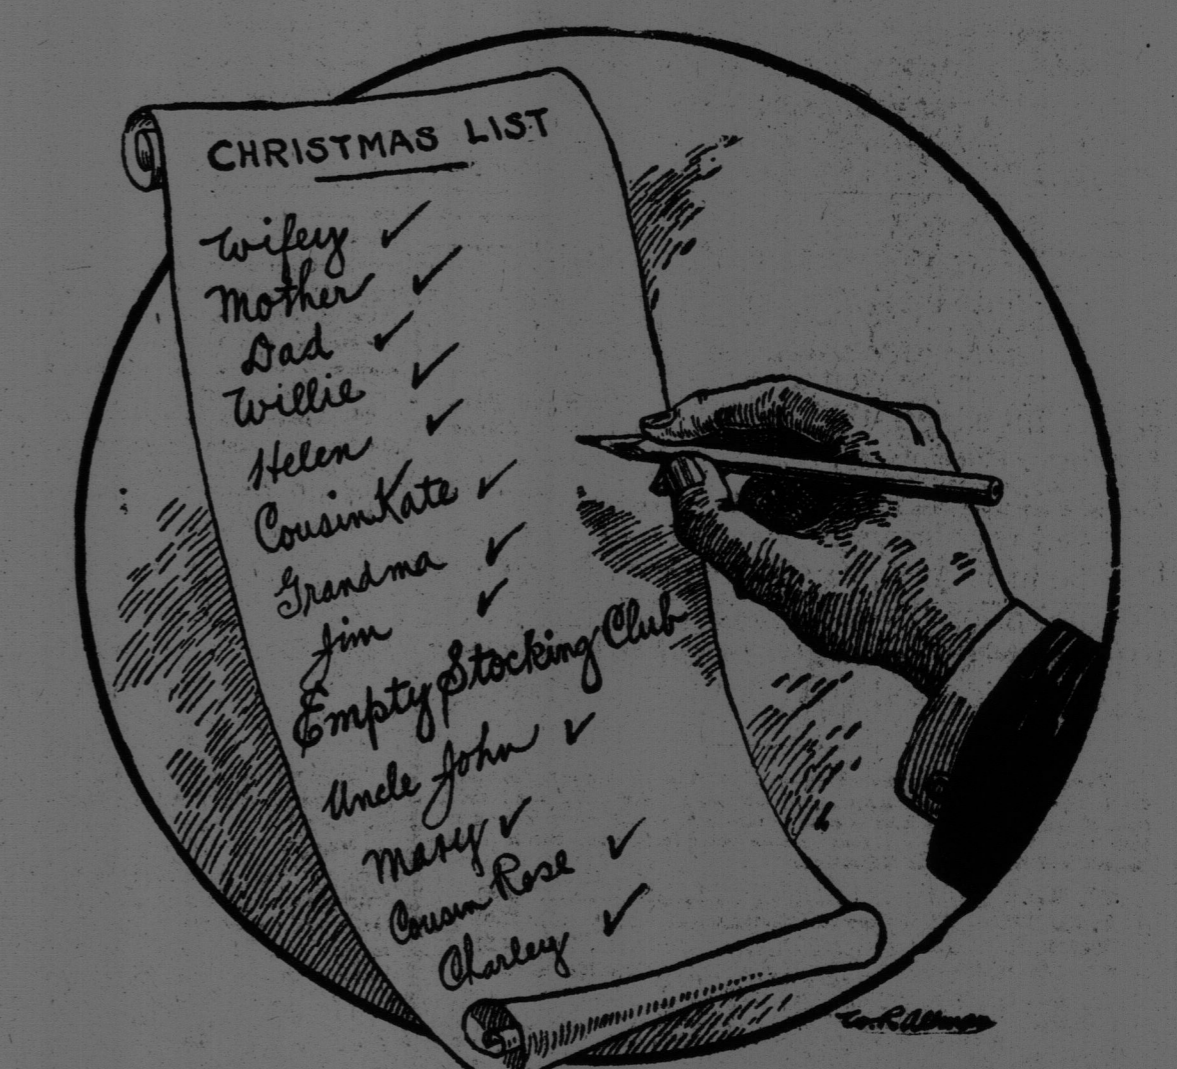 CHRISTMAS LIST
Wifey ✓
Mother ✓
Dad ✓
Willie ✓
Helen ✓
Cousin Kate ✓
Grandma ✓
Jim ✓
Empty Stocking Club
Uncle John ✓
Mary ✓
Cousin Rose ✓
Charley ✓